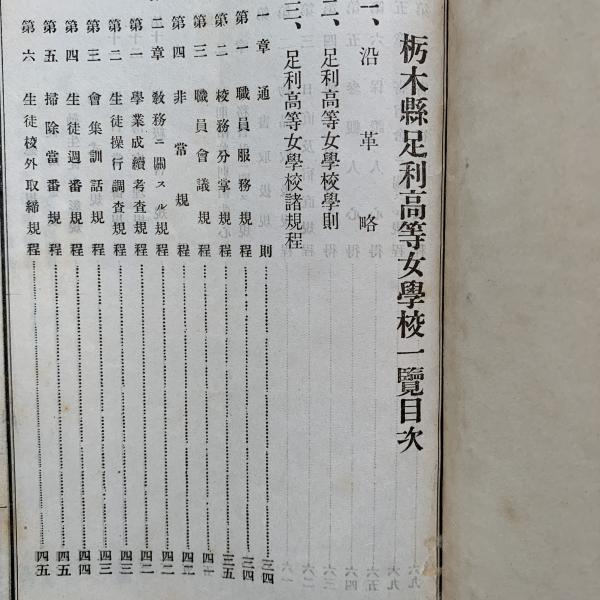 栃木縣足利高等女學校一覽目次
一、沿革略
二、足利高等女學校學則
三、足利高等女學校諸規程
一章 通則 三四
第一 職員服務規程 三四
第二 校務分掌規程 三五
第三 職員會議規程
第四 非常規程 四二
二章 敎務ニ關スル規程 四二
第一 學業成績考査規程 四二
第二 生徒操行調査規程 四三
第三 會集訓話規程 四三
第四 生徒週番規程 四四
第五 掃除當番規程 四五
第六 生徒校外取締規程 四五